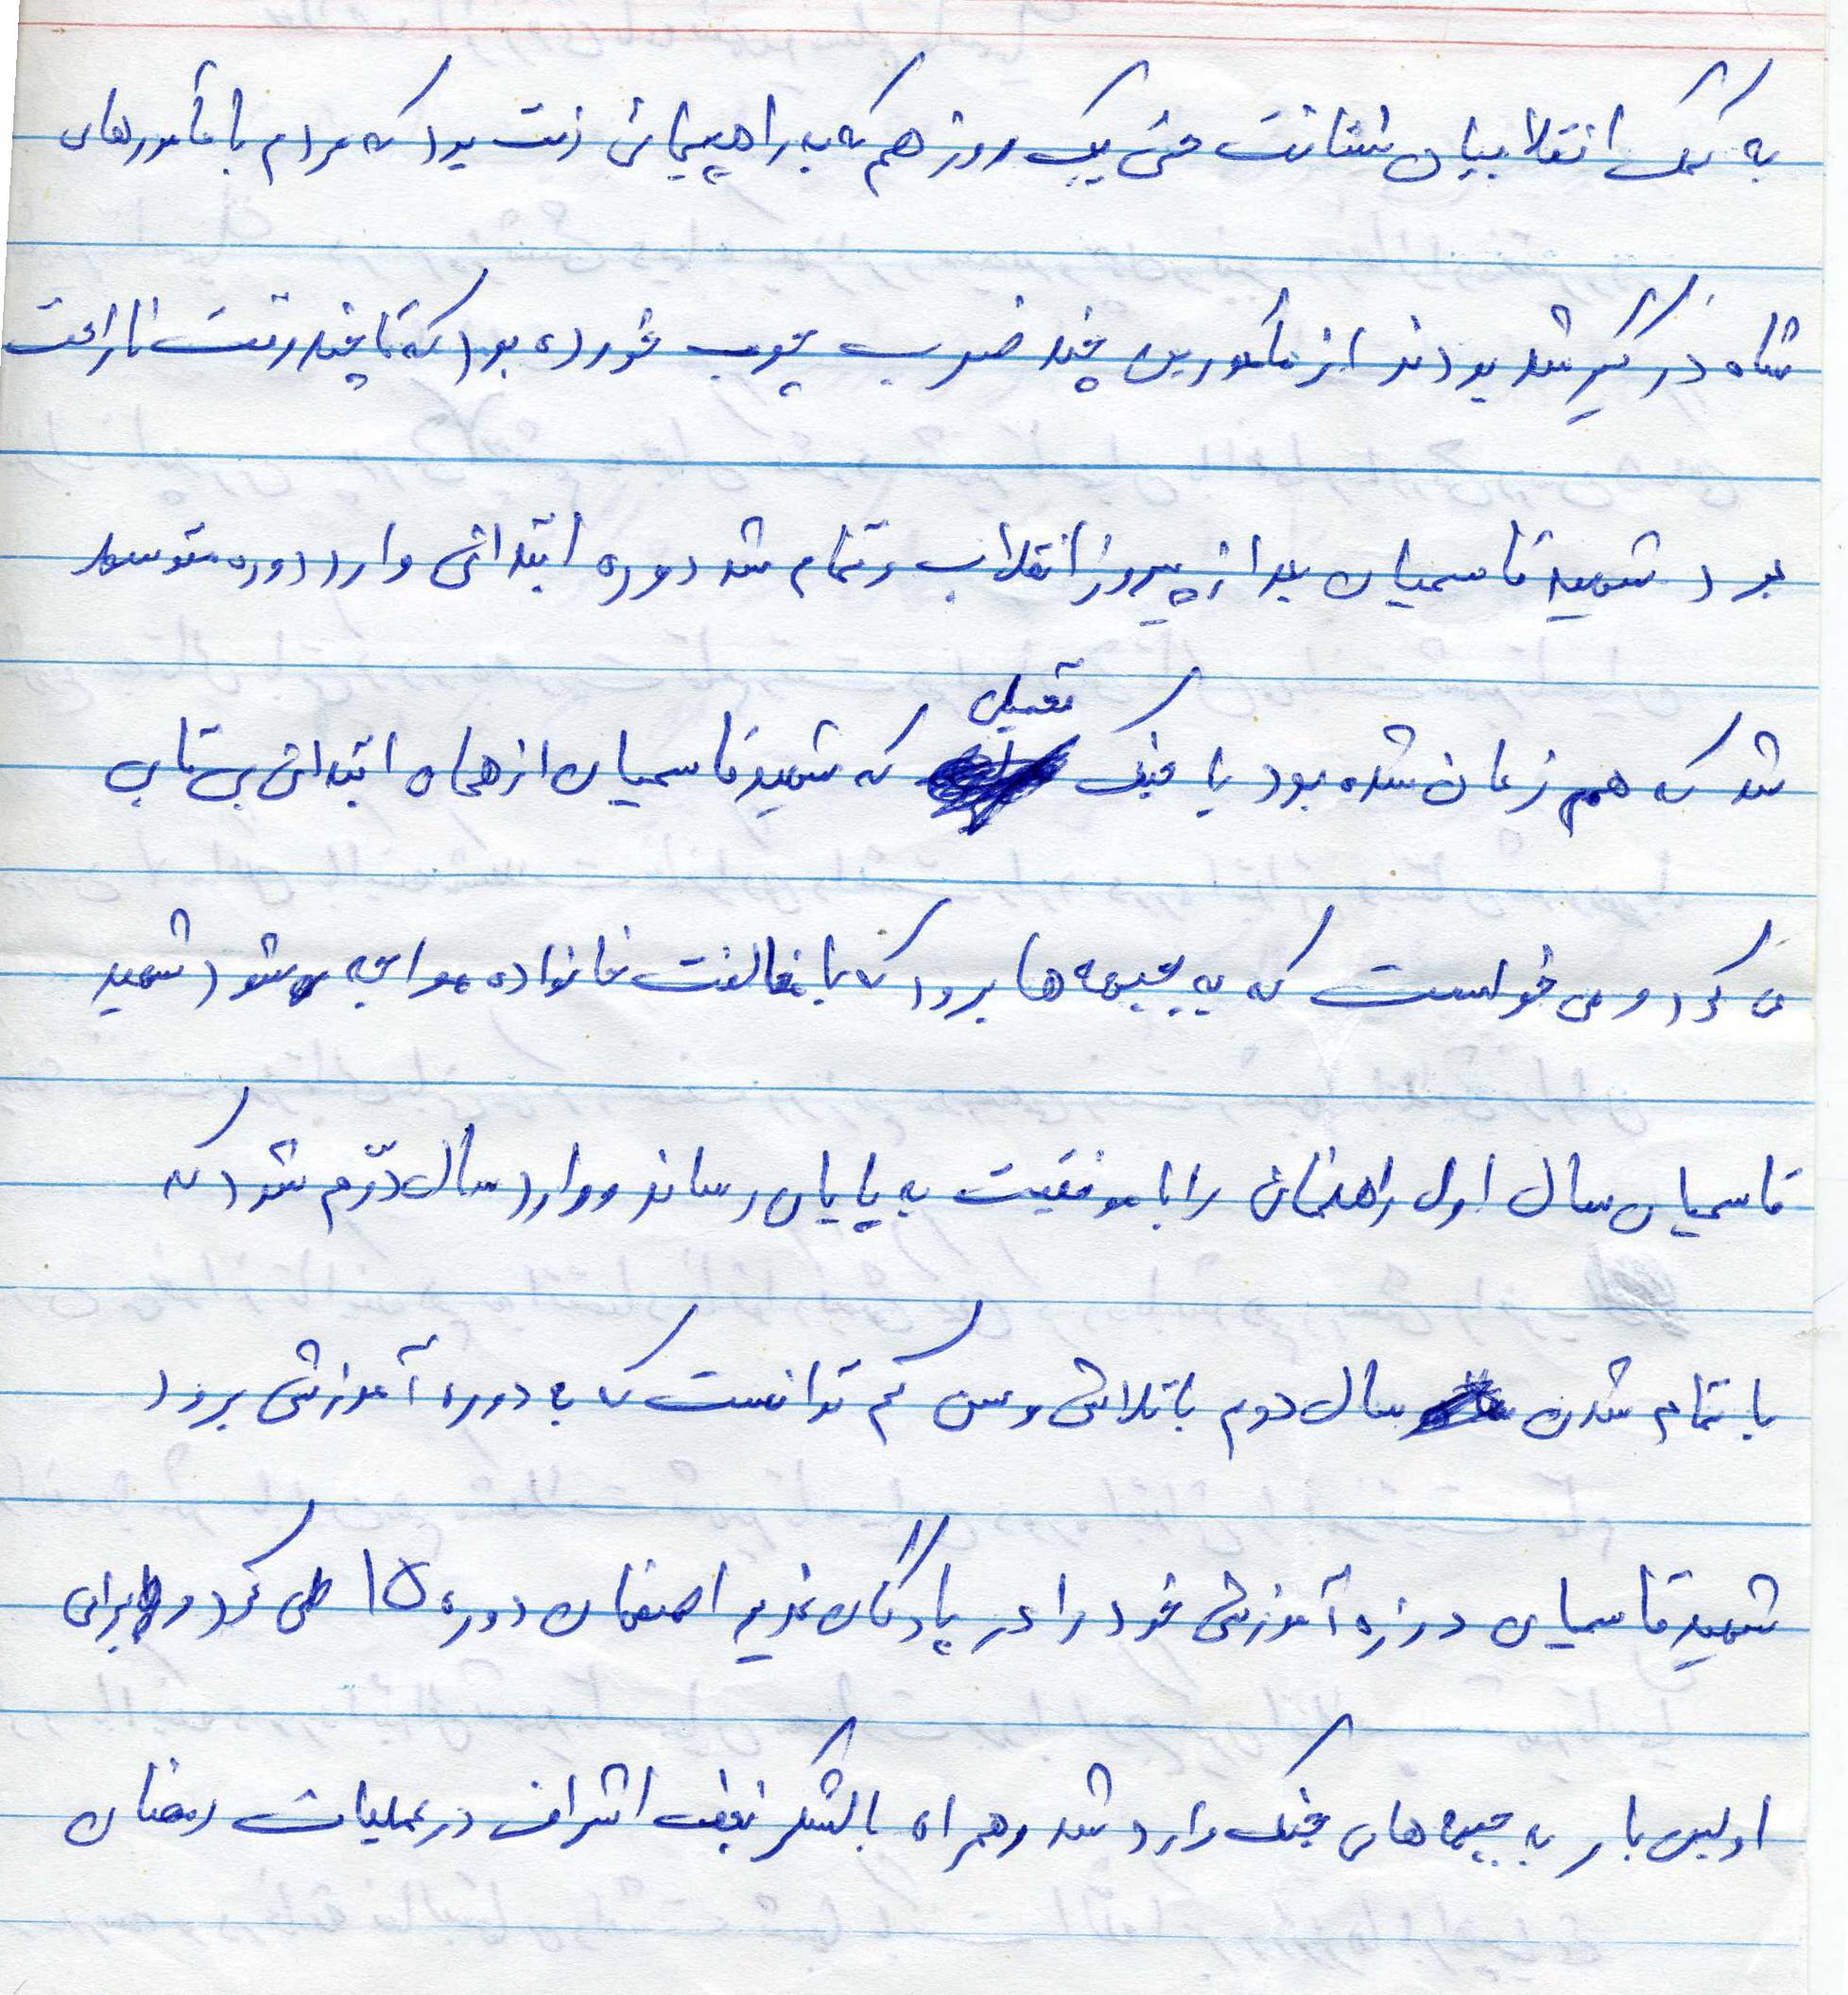 به کمک انقلابیان شتافت حتی یک روز هم که به راهپیمائی رفته بود که مردم با مأمورهای
شاه درگیر شد بودند از مأمورین چند ضرب چوب خورده بود که تا چند وقت ناراحت
بود شهید قاسمیان بعد از پیروز انقلاب و تمام شد دوره ابتدائی وارد دوره متوسطه
شد که هم زمان شده بود با جنگ تحمیلی که شهید قاسمیان از همان ابتدائی بی تابی
می کرد و می خواست که به جبهه ها برود که با مخالفت خانواده مواجه می شود شهید
قاسمیان سال اول راهنمائی را با موفقیت به پایان رساند و وارد سال دوّم شد که
با تمام شدن سال دوم با تلاش و سن کم توانست که به دوره آموزشی برود
شهید قاسمیان دوره آموزشی خود را در پادگان غدیر اصفهان دوره 15 طی کرد و برای
اولین بار به جبهه های جنگ وارد شد و همراه با لشکر نجف اشراف در عملیات رمضان